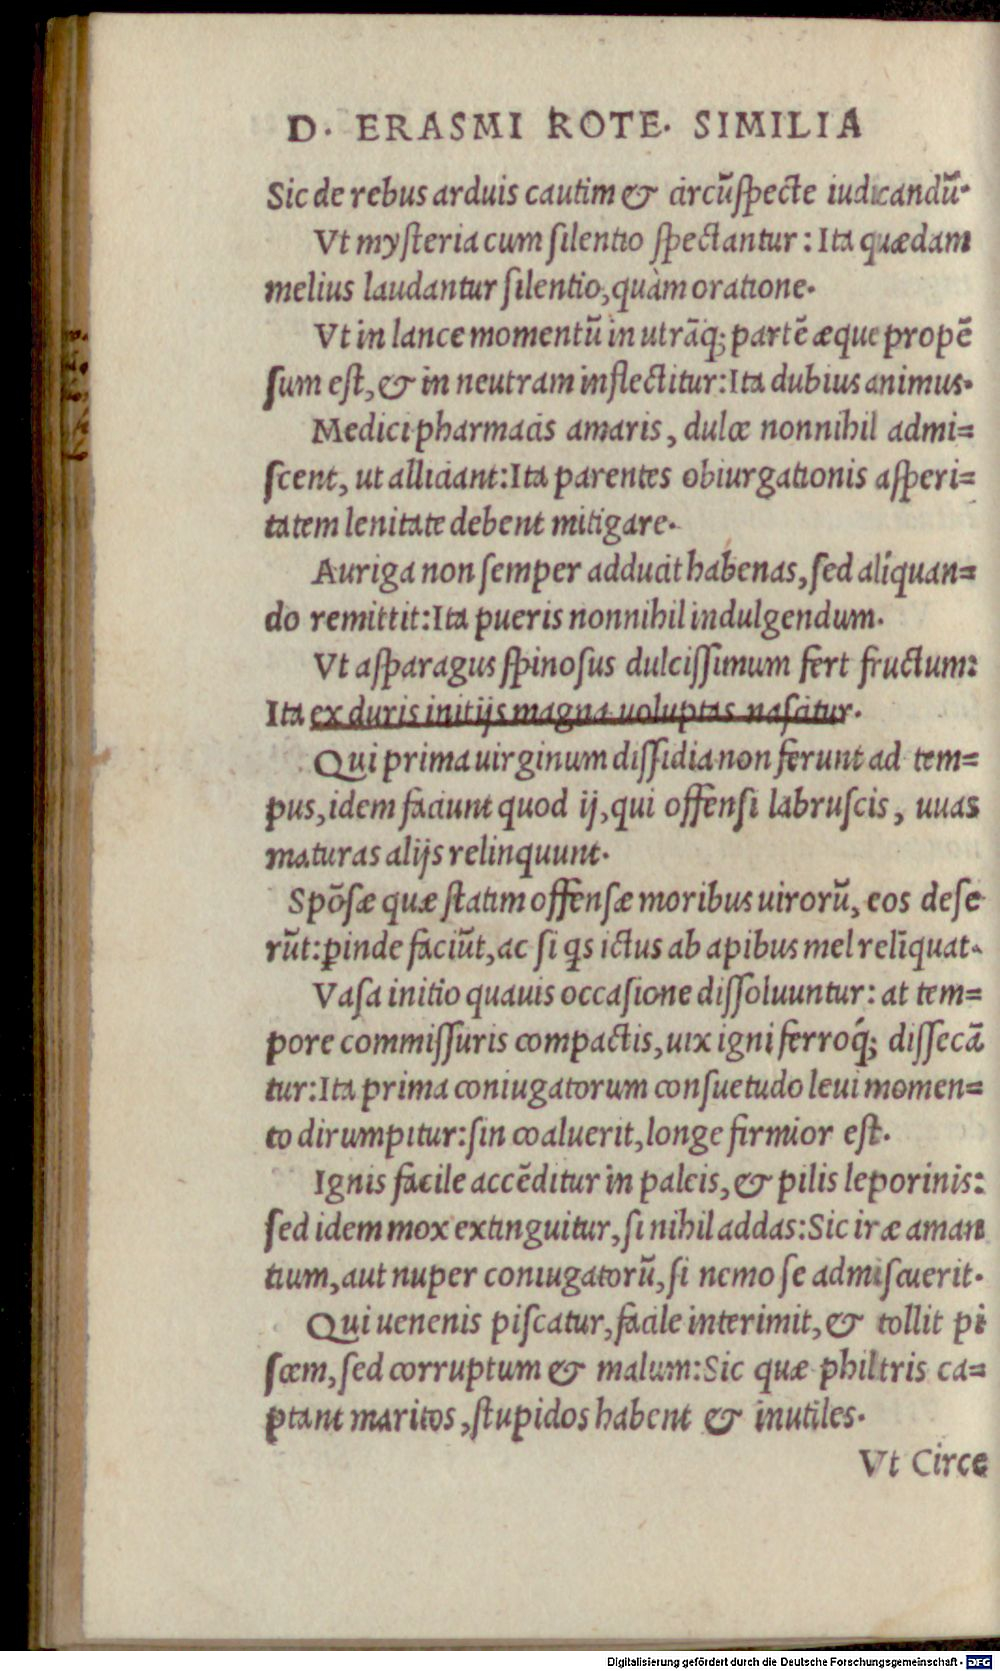 D. ERASMI ROTE. SIMILIA
Sic de rebus arduis cautim & circũſpecte iudicandũ.
Vt myſteria cum ſilentio ſpectantur: Ita quædam
melius laudantur ſilentio, quàm oratione.
Vt in lance momentũ in utrãq; partẽ æque propẽ
ſum eſt, & in neutram inflectitur: Ita dubius animus.
Medici pharmacis amaris, dulce nonnihil admi=
ſcent, ut alliciant: Ita parentes obiurgationis aſperi=
tatem lenitate debent mitigare.
Auriga non ſemper adducit habenas, ſed aliquan=
do remittit: Ita pueris nonnihil indulgendum.
Vt aſparagus ſpinoſus dulciſſimum fert fructum:
Ita ex duris initijs magna uoluptas naſcitur.
Qui prima uirginum diſſidia non ferunt ad tem=
pus, idem faciunt quod ij, qui offenſi labruſcis, uuas
maturas alijs relinquunt.
Spõſæ quæ ſtatim offenſæ moribus uirorũ, eos deſe
rũt: ꝑinde faciũt, ac ſi qs ictus ab apibus mel relĩquat.
Vaſa initio quauis occaſione diſſoluuntur: at tem=
pore commiſſuris compactis, uix igni ferroq́; diſſecã
tur: Ita prima coniugatorum conſuetudo leui momen=
to dirumpitur: ſin coaluerit, longe firmior eſt.
Ignis facile accẽditur in paleis, & pilis leporinis:
ſed idem mox extinguitur, ſi nihil addas: Sic iræ aman
tium, aut nuper coniugatorũ, ſi nemo ſe admiſcuerit.
Qui uenenis piſcatur, facile interimit, & tollit pi
ſcem, ſed corruptum & malum: Sic quæ philtris ca=
ptant maritos, ſtupidos habent & inutiles.
Vt Circe
Digitalisierung gefördert durch die Deutsche Forschungsgemeinschaft - DFG